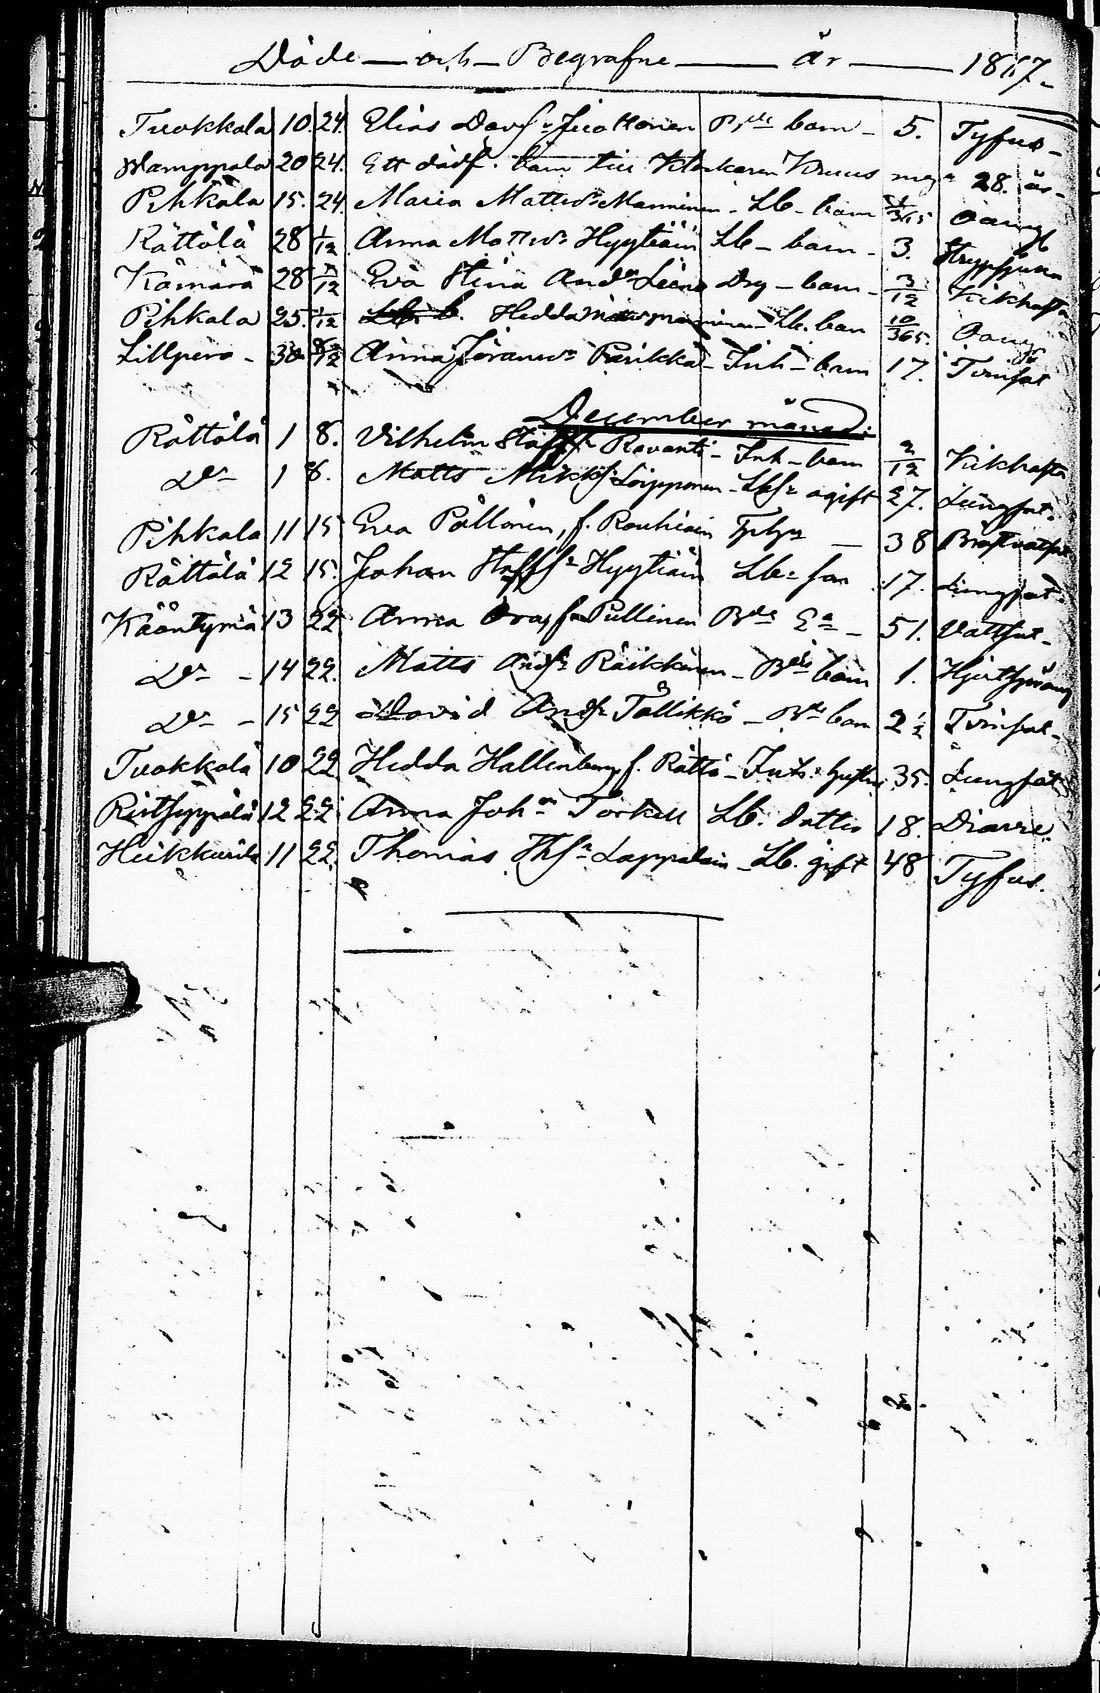 Döde — och — Begrafne — år — 1867 -
Tuokkola 10. 24. Elias Davs: Juottonen barn - 5. Tyfus -
Wamppala 20 24. Ett dödf. barn till Klockaren Kruus 28. år -
Pihkala 15. 24. Maria Mattsdr Manninen - Lb - barn 1/365
Rättälä 28 1/12 Anna Mattsdr Hyytiäin Lb - barn - 3. Strypsjuka
Kämärä 28 1/12 Eva Stina Andsdr - barn - 3/12 Kikhosta
Pihkala 25. 1/12 Hedda - Lb. barn 10/365.
Lillpero - 30 Anna Göransdr Parikka - Inh - barn 17. Tvinsot
December månad:
Rättälä 1 8. Vilhelm Staffs: Ravanti - Inh - barn 2/12 Kikhosta
Do 1 8. Matts Mikks: Loipponen - Lbs: ogift 27. Lungsot.
Pihkala 11 15 Eva Pöllönen, f. Rouhiain — 38
Rättälä 12 15. Johan Staffs: Hyytiäin Lb: son 17. Lungsot.
Kääntymä 13 22 Anna Pullinen Ea - 51. Vattsot -
Do - 14 22. Matts Ands: Räikkönen - barn 1. Hjertsprång
Do - 15 22 David Ands: Tållikkö - barn 2 1/2 Tvinsot -
Tuokkola 10 22 Hedda Hallenberg f. Rättö - Inhs: hustru 35. Lungsot
12 22 Anna Johdr Torkell Lb. dotter 18. Diarre.
Heikkurila 11 22. Thomas Ths: Lappalain - Lb. gift 48 Tyfus.